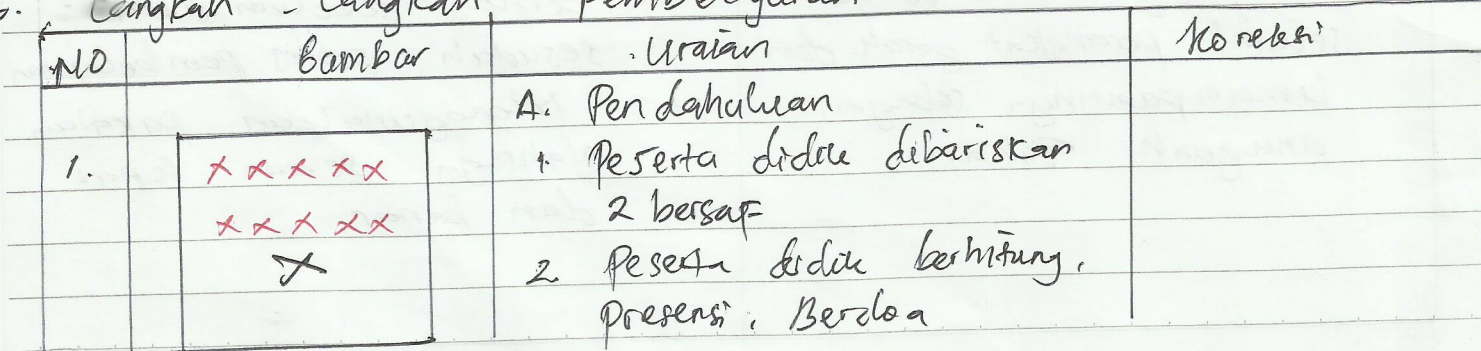 Langkah - Langkah Pembelajaran
NO Gambar Uraian Koreksi
A. Pendahuluan
1. x x x x x 1. Peserta didik dibariskan
x x x x x 2 bersaf
x 2 Peserta didik berhitung,
presensi, Berdoa